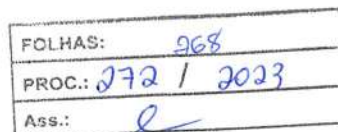 FOLHAS: 268
PROC.: 272 / 2023
Ass.: